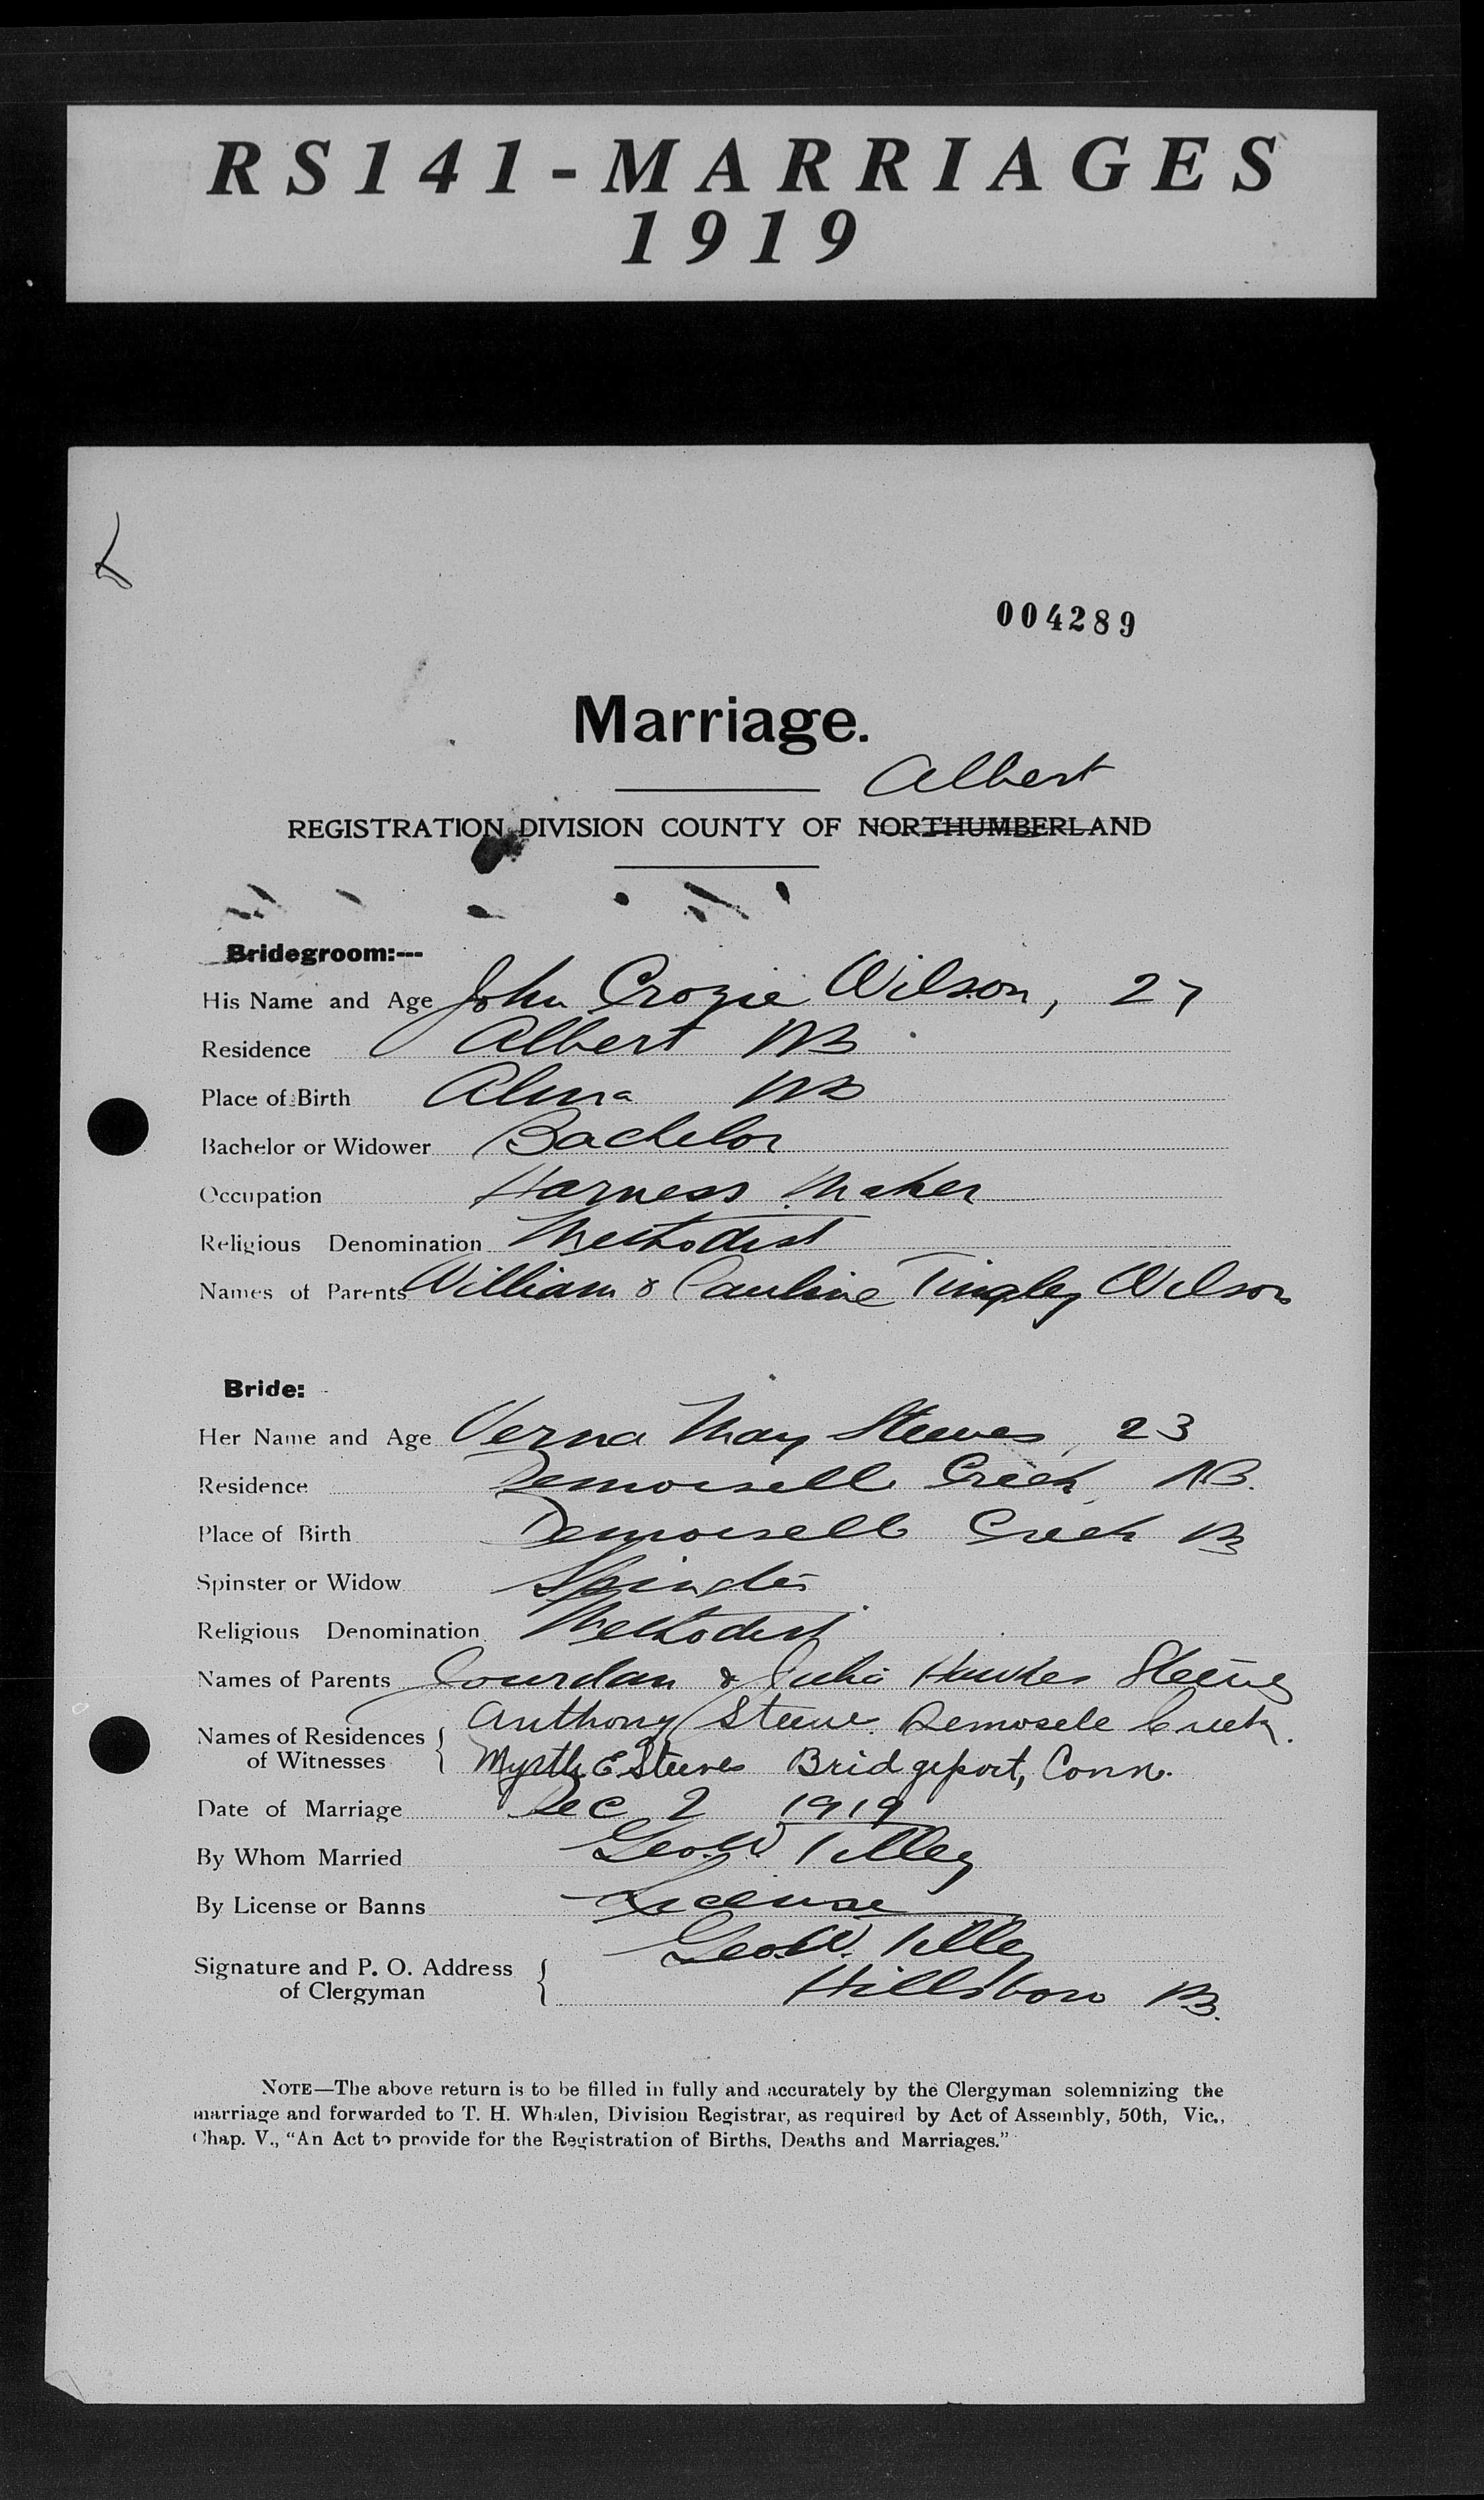 RS141-MARRIAGES
1919
004289
Marriage.
Albert
REGISTRATION DIVISION COUNTY OF NORTHUMBERLAND
Bridegroom:---
His Name and Age John Crozie Wilson, 27
Residence Albert NB
Place of Birth Alma NB
Bachelor or Widower Bachelor
Occupation Harness Maker
Religious Denomination Methodist
Names of Parents William & Pauline Tingley Wilson
Bride:
Her Name and Age Verna May Steeves, 23
Residence Demoisell Creek NB.
Place of Birth Demoisell Creek NB
Spinster or Widow Spinster
Religious Denomination Methodist
Names of Parents Jourdan & Julia Hawkes Steeves
Names of Residences of Witnesses { Anthony Steeve. Demosele Creek.
Myrtle E Steeves Bridgeport, Conn.
Date of Marriage Dec 2 1919
By Whom Married Geo. W Tilley
By License or Banns License
Signature and P. O. Address of Clergyman { Geo. W. Tilley
Hillsboro NB.
NOTE—The above return is to be filled in fully and accurately by the Clergyman solemnizing the
marriage and forwarded to T. H. Whalen, Division Registrar, as required by Act of Assembly, 50th, Vic.,
Chap. V., “An Act to provide for the Registration of Births, Deaths and Marriages.”